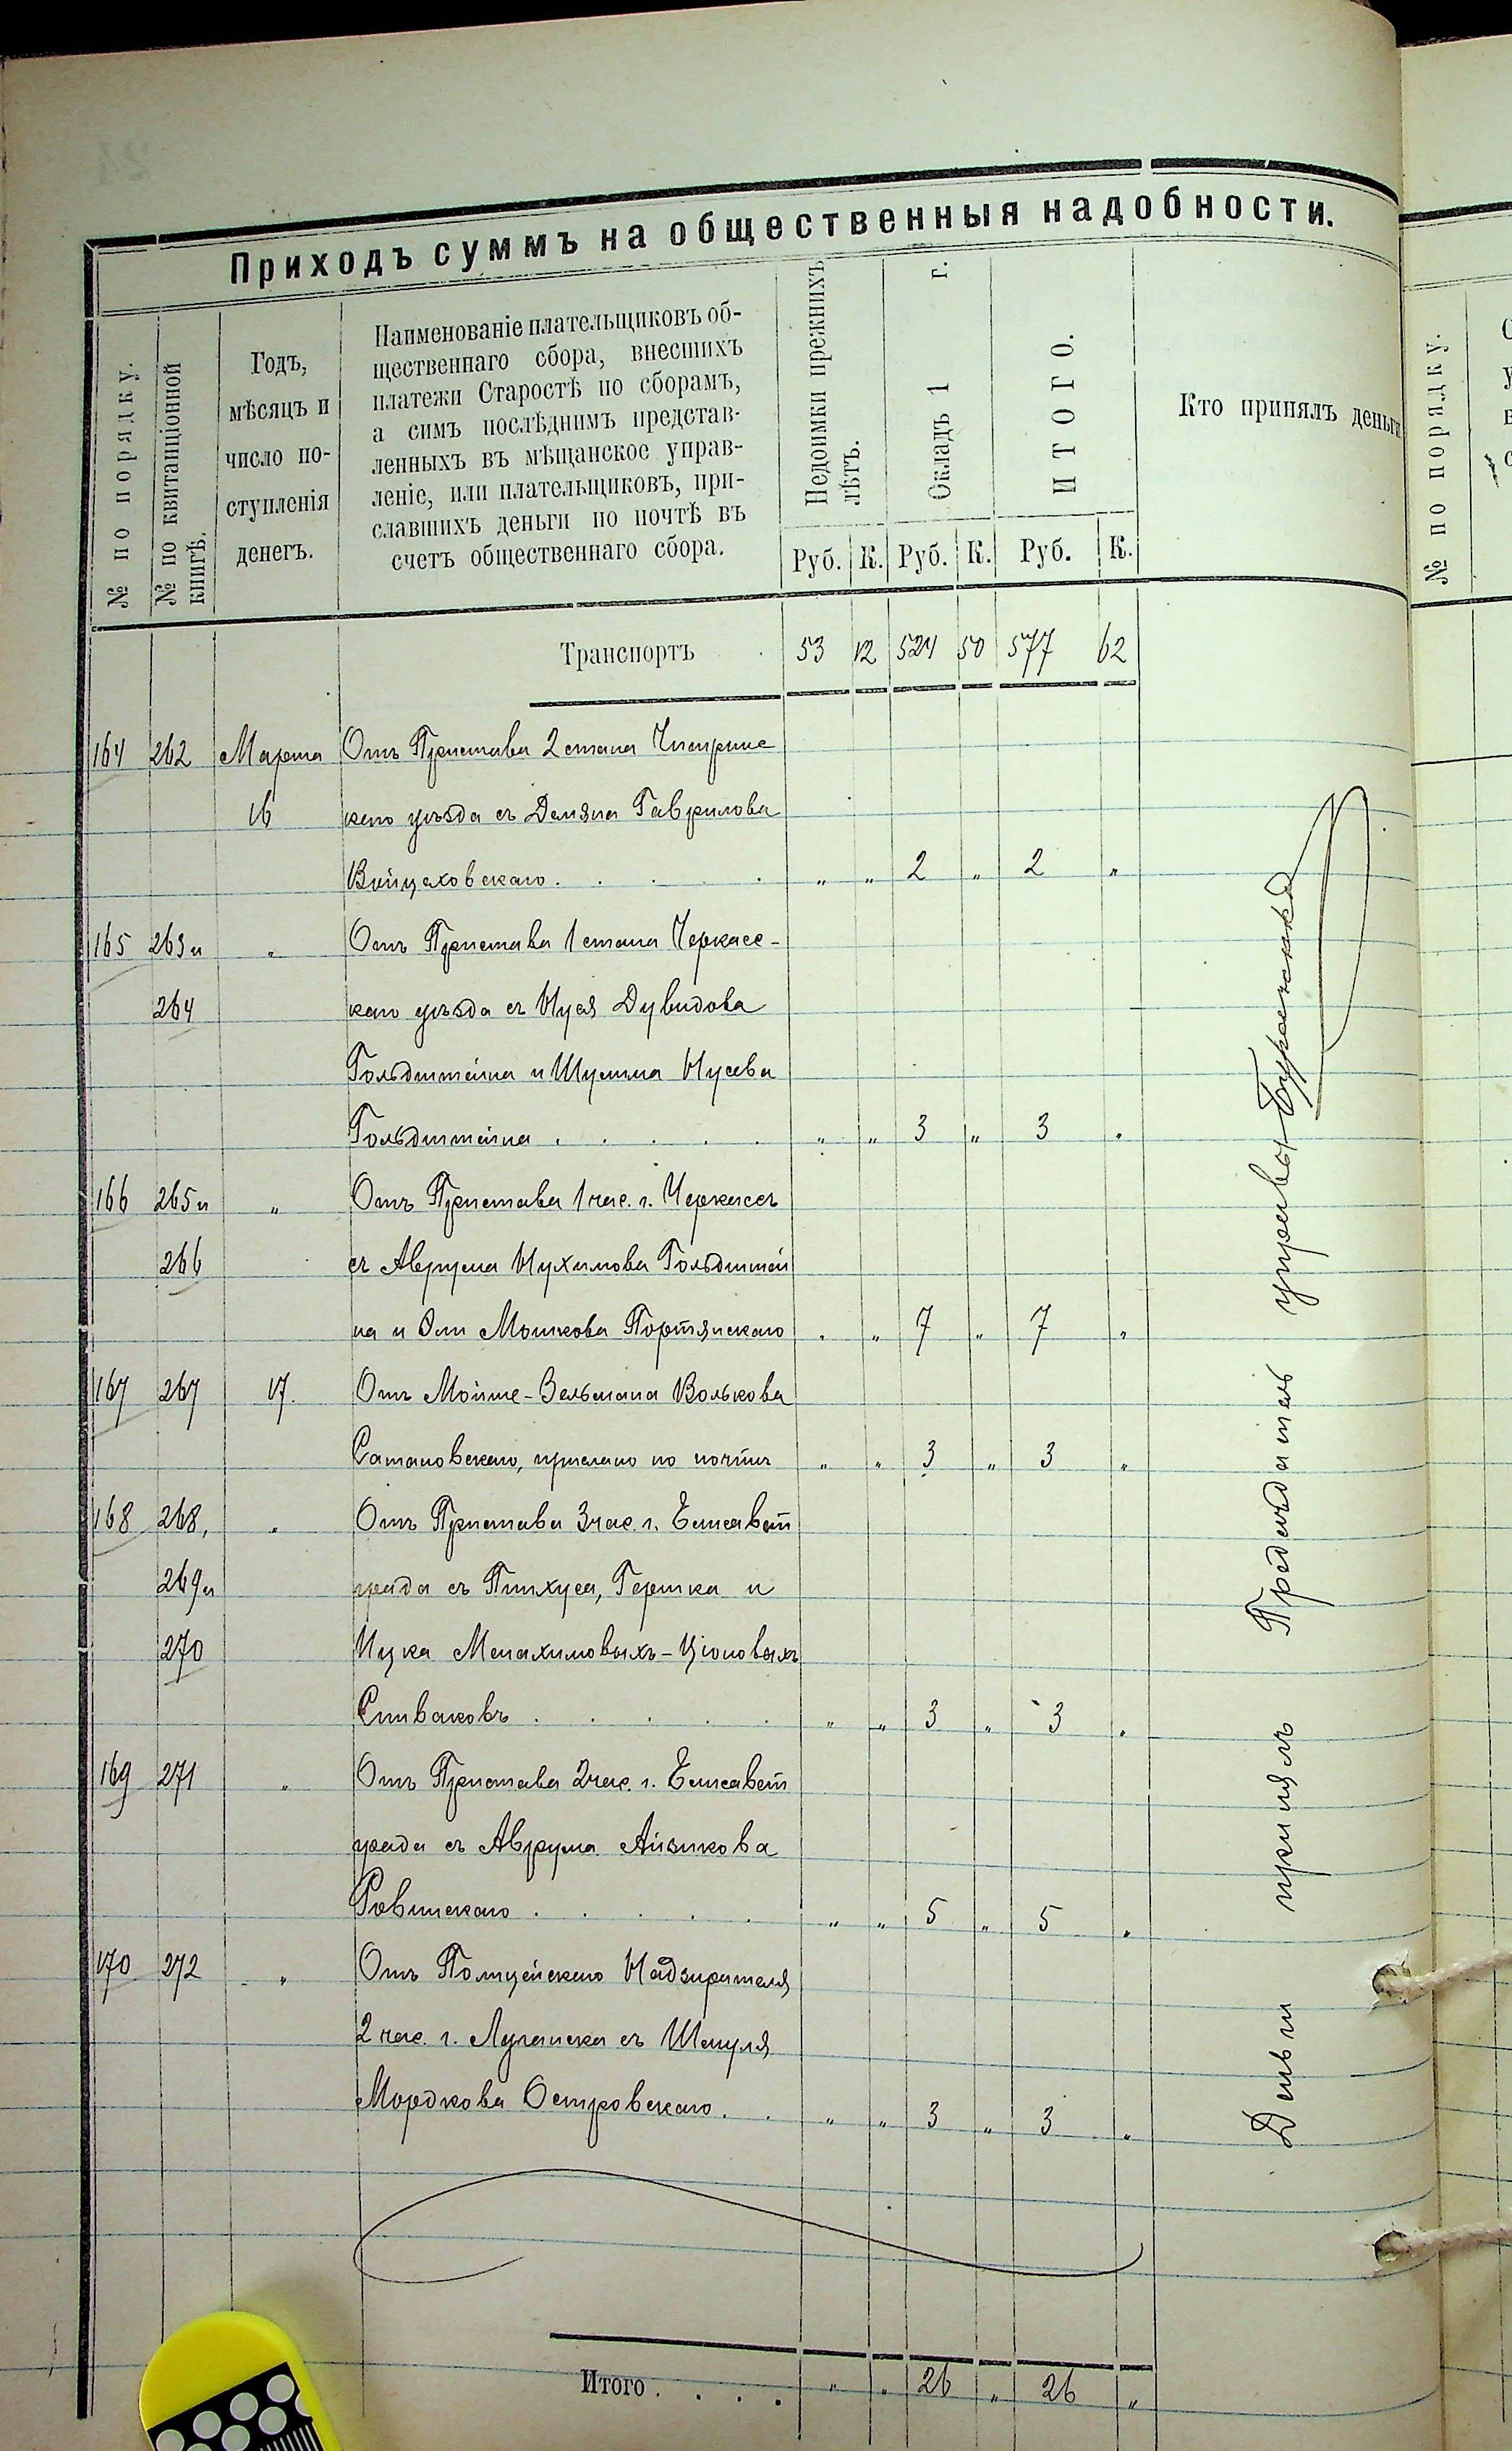 Приходъ суммъ на общественныя надобности.
№ по порядку.
№ по квитанціонной
книгѣ.
Годъ,
мѣсяцъ и
число по-
ступленія
денегъ.
Наименованіе плательщиковъ об-
щественнаго сбора, внесшихъ
платежи Старостѣ по сборамъ,
а симъ послѣднимъ представ-
ленныхъ въ мѣщанское управ-
леніе, или плательщиковъ, при-
славшихъ деньги по почтѣ въ
счетъ общественнаго сбора.
Недоимки прежнихъ
лѣтъ.
Окладъ 1 г.
ИТОГО.
Кто принялъ деньги
Руб. К. Руб. К. Руб. К.
Транспортъ 53 12 524 50 577 62
164 262 Марта Отъ Пристава 2 стана Чигринс
16 каго уѣзда съ Демяна Гаврилова
Войцеховскаго . . . . „ „ 2 „ 2 „
165 263 и „ Отъ Пристава 1 стана Черкасс-
264 каго уѣзда съ Нуся Дувидова
Гольдштейна и Шулима Нусева
Гольдштейна . . . . . „ „ 3 „ 3 „
166 265 и „ Отъ Пристава 1 час. г. Черкассъ
266 съ Аврума Нухимова Гольдштей
на и Эли Мошкова Портянскаго „ „ 7 „ 7 „
167 267 17. Отъ Мойше-Зельмана Волькова
Сатановскаго, прислано по почтѣ „ „ 3 „ 3 „
168 268, „ Отъ Пристава 3 час. г. Елисавет
269 и града съ Пинхуса, Гершка и
270 Ицка Менахимовыхъ-Ціоновыхъ
Спиваковъ . . . . . „ „ 3 „ 3 „
169 271 „ Отъ Пристава 2 час. г. Елисавет
града съ Аврума Айзикова
Ровинскаго . . . . . „ „ 5 „ 5 „
170 272 „ Отъ Полицейскаго Надзирателя
2 час. г. Луганска съ Шмуля
Мордкова Островскаго . . „ „ 3 „ 3 „
Итого . . . . „ „ 26 „ 26 „
Деньги принялъ Предсѣдатель управы
№ по порядку.